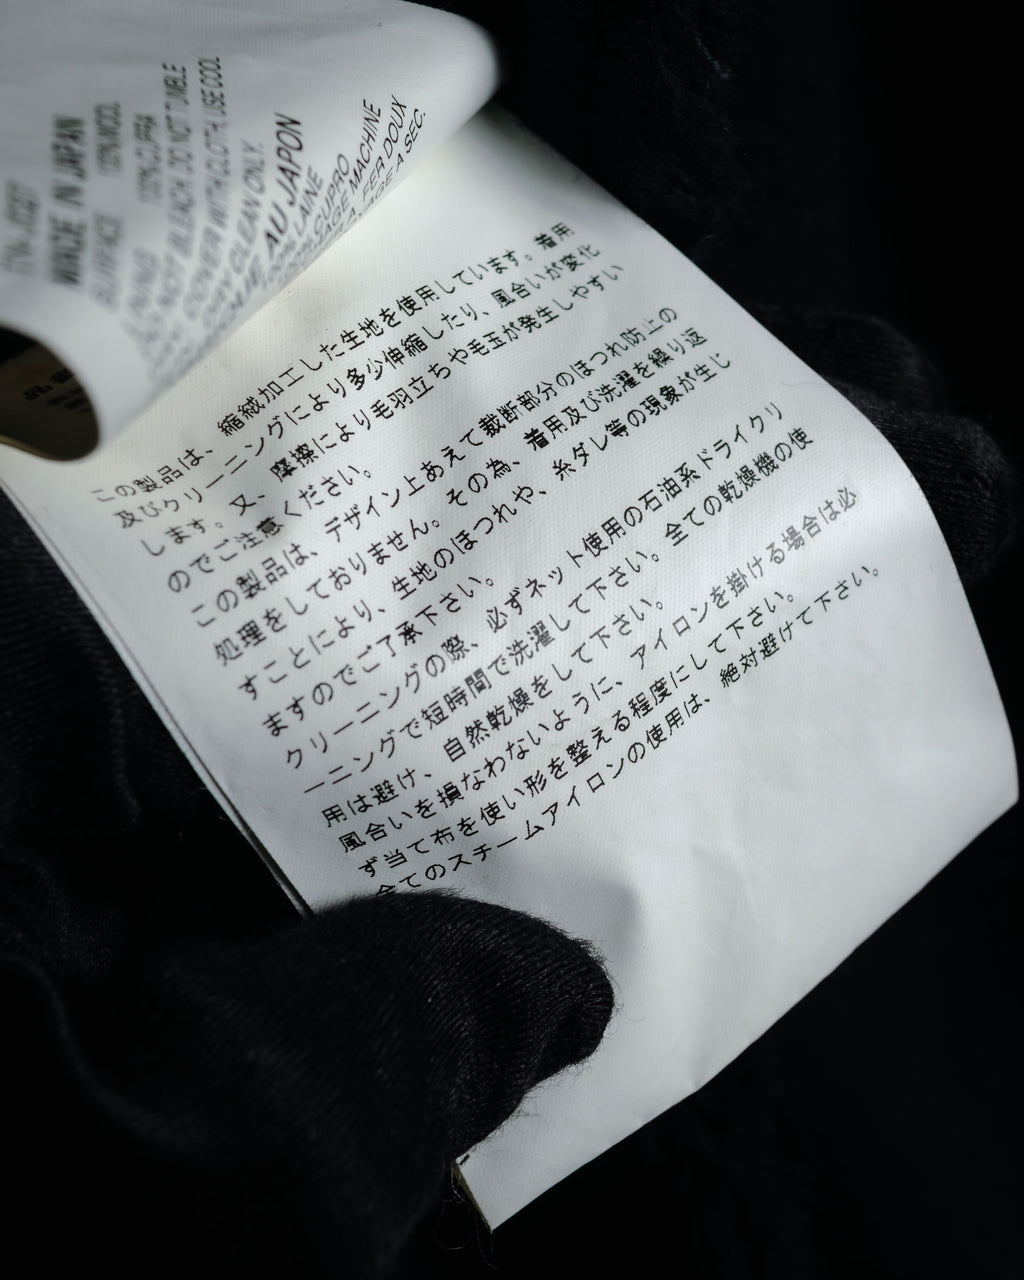 MADE IN JAPAN
SURFACE 100%WOOL
LINING 100%CUPRA
DO NOT BLEACH. DO NOT TUMBLE
COVER WITH CLOTH. USE COOL
DRY CLEAN ONLY.
AU JAPON
LAINE
CUPRO
MACHINE
FER DOUX
A SEC.
この製品は、縮絨加工した生地を使用しています。着用
及びクリーニングにより多少伸縮したり、風合いが変化
します。又、摩擦により毛羽立ちや毛玉が発生しやすい
のでご注意ください。
この製品は、デザイン上あえて裁断部分のほつれ防止の
処理をしておりません。その為、着用及び洗濯を繰り返
すことにより、生地のほつれや、糸ダレ等の現象が生じ
ますのでご了承下さい。
クリーニングの際、必ずネット使用の石油系ドライクリ
ーニングで短時間で洗濯して下さい。全ての乾燥機の使
用は避け、自然乾燥をして下さい。
風合いを損なわないように、アイロンを掛ける場合は必
ず当て布を使い形を整える程度にして下さい。
全てのスチームアイロンの使用は、絶対避けて下さい。